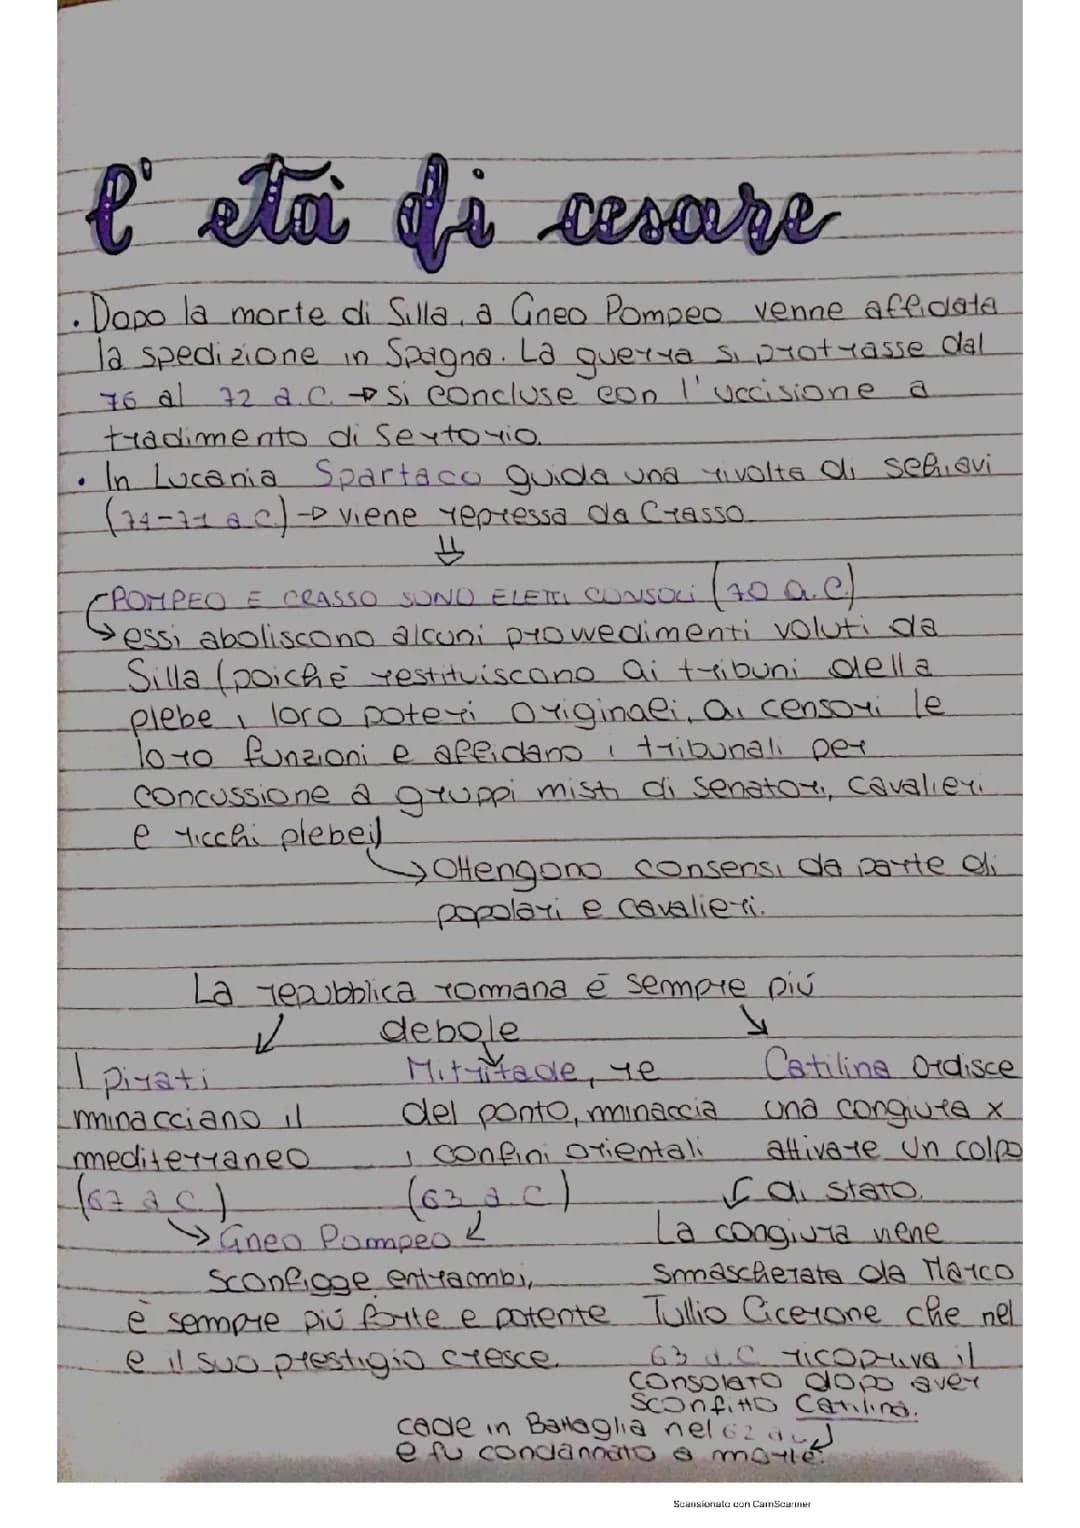 l'età di cesare
• Dopo la morte di Silla, a Gneo Pompeo venne affidata
la spedizione in Spagna. La guerra si protrasse dal
76 al 72 a.C. → si concluse con l'uccisione a
tradimento di Sertorio.
• In Lucania Spartaco guida una rivolta di schiavi
(74-71 a.C.) → viene repressa da Crasso.
⇓
POMPEO E CRASSO SONO ELETTI CONSOLI (70 a.C.)
→ essi aboliscono alcuni provvedimenti voluti da
Silla (poiché restituiscono ai tribuni della
plebe i loro poteri originali, ai censori le
loro funzioni e affidano i tribunali per
concussione a gruppi misti di senatori, cavalieri
e ricchi plebei)
→ Ottengono consensi da parte di
popolari e cavalieri.
La repubblica romana è sempre più
debole
I pirati
minacciano il
mediterraneo
(67 a.C.)
Mitritade, re
del ponto, minaccia
i confini orientali
(63 a.C)
→ Gneo Pompeo
sconfigge entrambi,
è sempre più forte e potente
e il suo prestigio cresce.
Catilina ordisce
una congiura x
attivare un colpo
di stato.
La congiura viene
smascherata da Marco
Tullio Cicerone che nel
63 a.C. ricopriva il
consolato dopo aver
sconfitto Catilina.
cade in Battaglia nel 62 a.C
e fu condannato a morte.
Scansionato con CamScanner